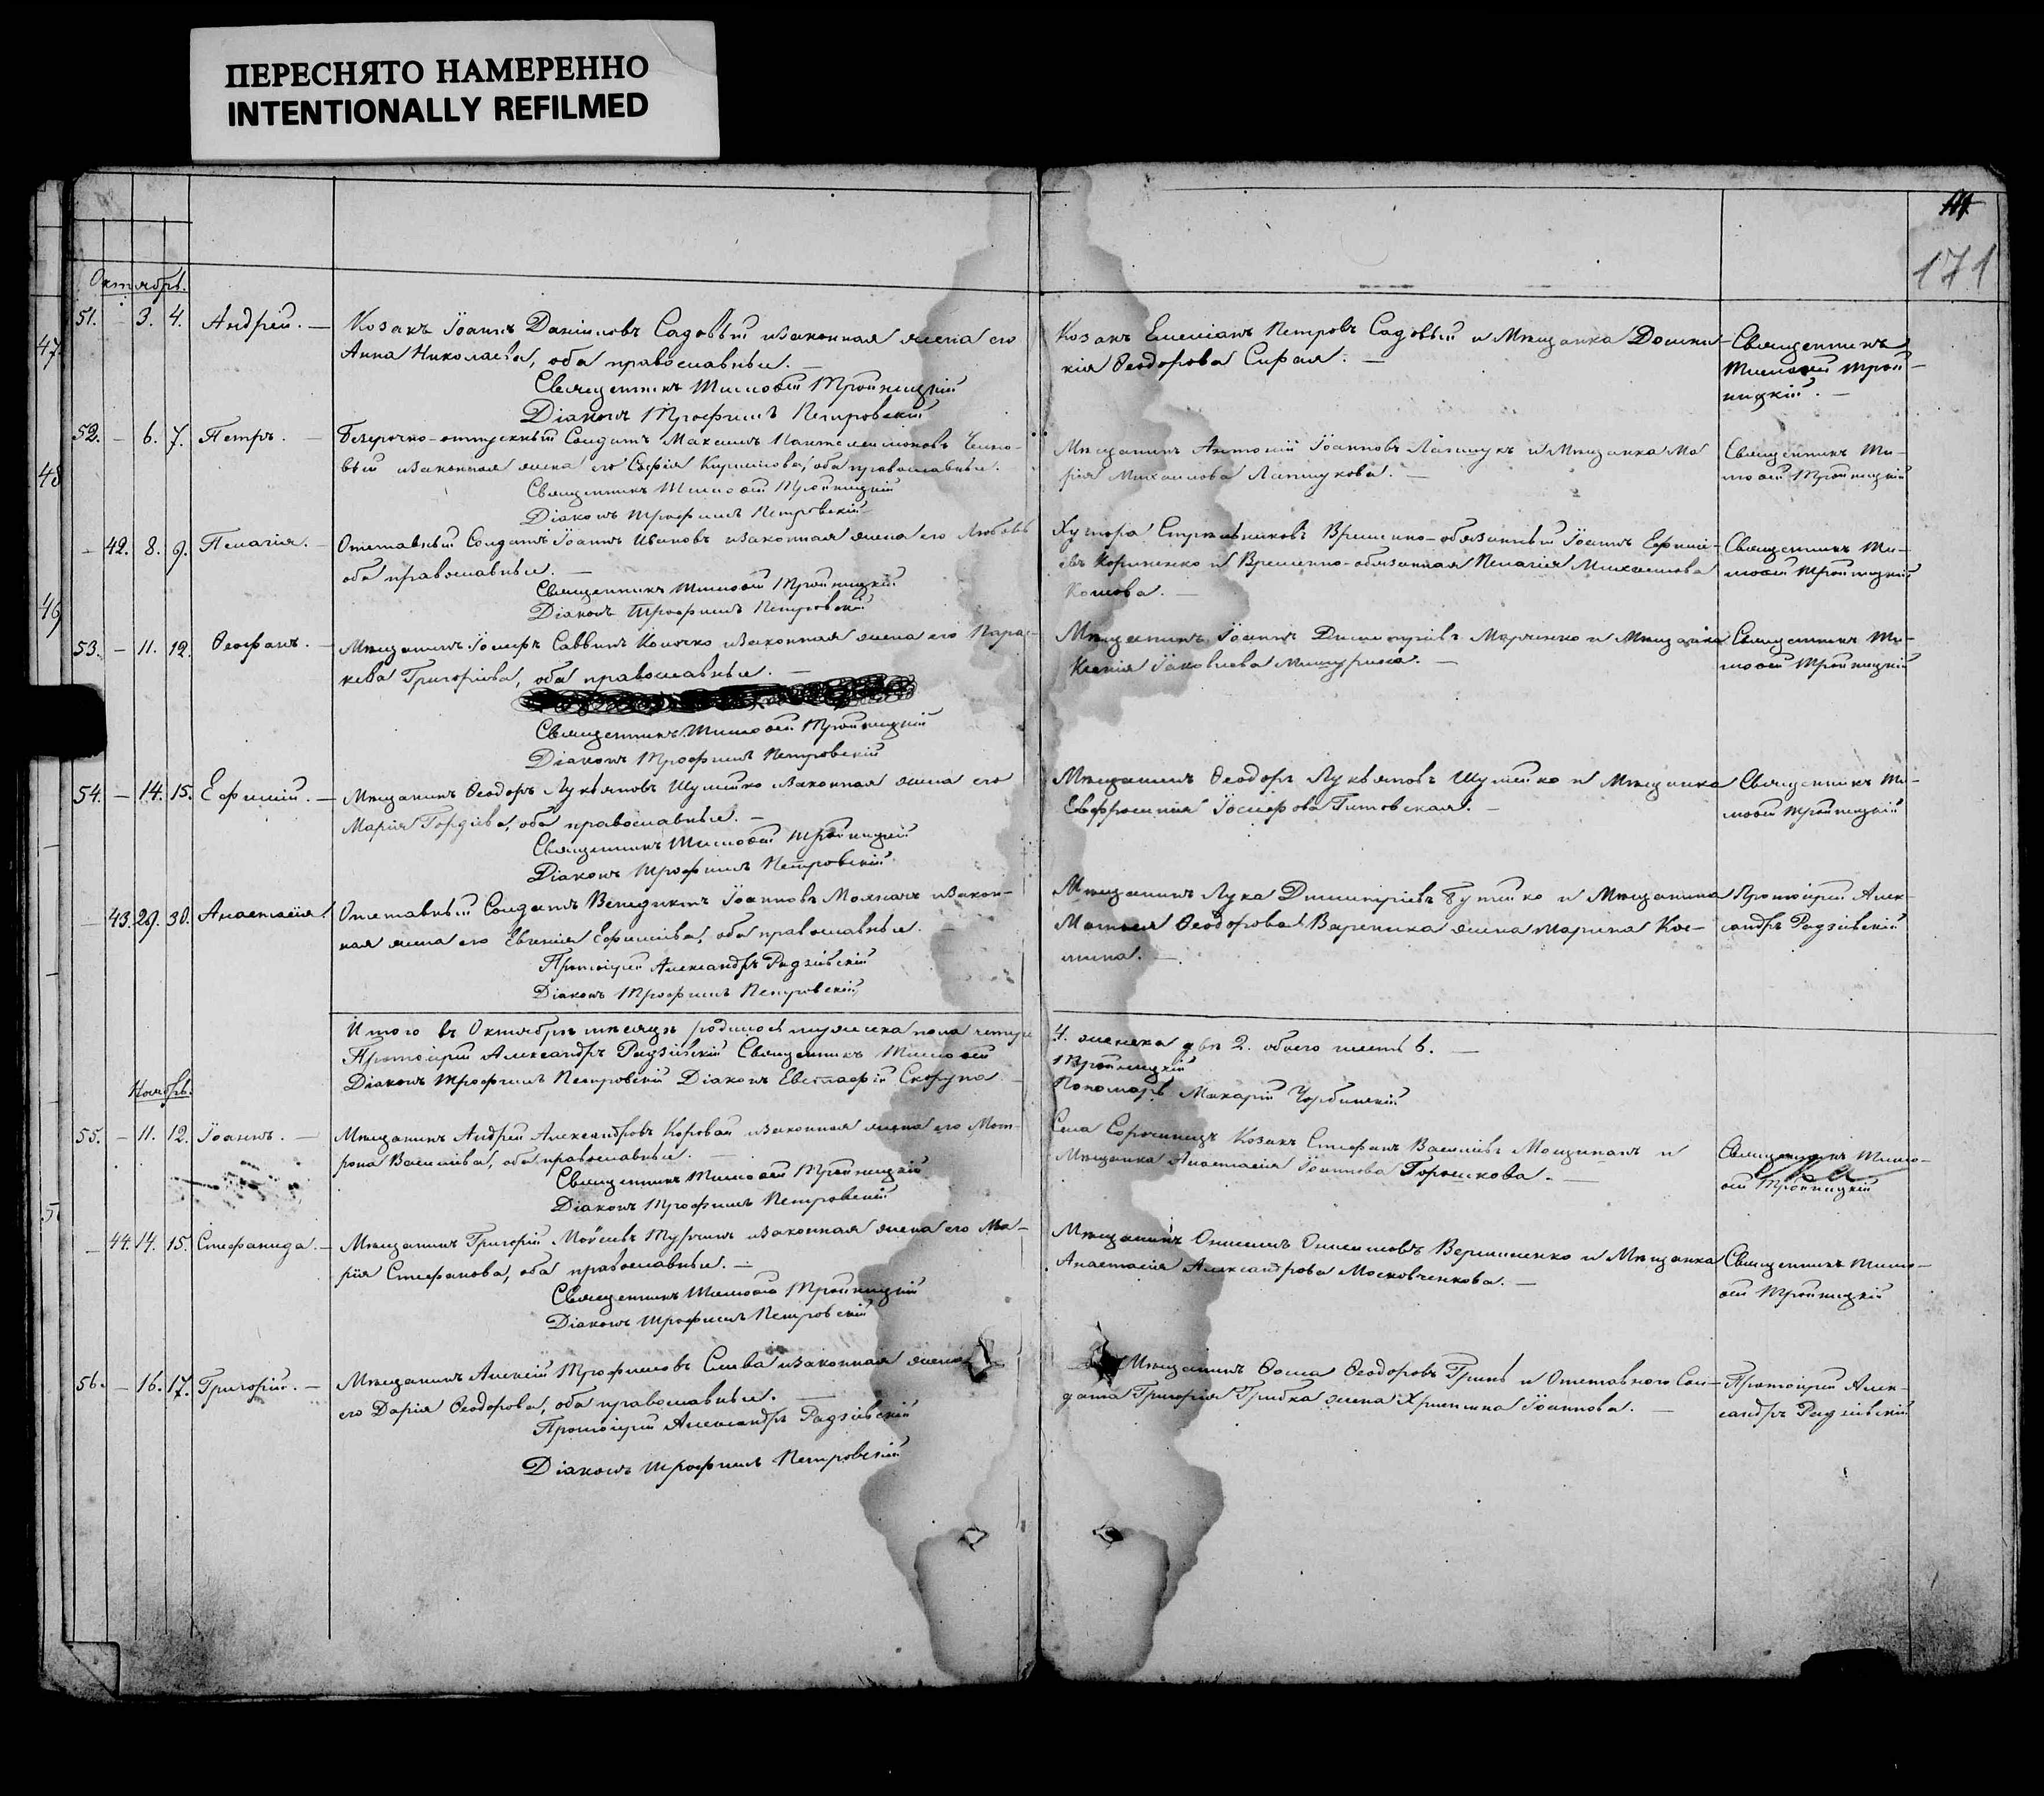 ПЕРЕСНЯТО НАМЕРЕННО
INTENTIONALLY REFILMED
171
Октябрь.
51. – 3. 4. Андрей. –
Козакъ Іоаннъ Даніиловъ Садовый и законная жена его
Анна Николаева, оба православные. –
Священникъ Тимоѳей Тройницкій
Діаконъ Трофимъ Петровскій
Козакъ Емеліанъ Петровъ Садовый и Мѣщанка Домни-
кія Ѳеодорова Сирая. –
Священникъ
Тимоѳей Трой-
ницкій. –
52. – 6. 7. Петръ. –
Безсрочно-отпускный Солдатъ Максимъ Пантелеимоновъ
и законная жена его Софія Кирилова, оба православные.
Священникъ Тимоѳей Тройницкій
Діаконъ Трофимъ Петровскій
Мѣщанинъ Антоній Іоанновъ Лапшукъ и Мѣщанка Ма
рія Михаилова Лапшукова. –
Священникъ Ти-
моѳей Тройницкій
– 42. 8. 9. Пелагія. –
Отставный Солдатъ Іоаннъ Ивановъ и законная жена его Любовь
оба православные. –
Священникъ Тимоѳей Тройницкій
Діаконъ Трофимъ Петровскій
Хутора Временно-обязанный Іоаннъ Ефимі-
евъ Корниенко и Временно-обязанная Пелагія Михаилова
Священникъ Ти-
моѳей Тройницкій
53. – 11. 12. Ѳеофанъ. –
Мѣщанинъ Іосифъ Саввинъ и законная жена его Парас-
кева Григоріева, оба православные. –
Священникъ Тимоѳей Тройницкій
Діаконъ Трофимъ Петровскій
Мѣщанинъ Іоаннъ Димитріевъ Марченко и Мѣщанка
Ксенія Іаковлева –
Священникъ Ти-
моѳей Тройницкій
54. – 14. 15. Ефимій. –
Мѣщанинъ Ѳеодоръ Лукьяновъ Шулейко и законная жена его
Марія Гордіева, оба православные. –
Священникъ Тимоѳей Тройницкій
Діаконъ Трофимъ Петровскій
Мѣщанинъ Ѳеодоръ Лукьяновъ Шулейко и Мѣщанка
Евфросинія Іосифова Гитовская. –
Священникъ Ти-
моѳей Тройницкій
– 43. 29. 30. Анастасія.
Отставный Солдатъ Венедиктъ Іоанновъ и закон-
ная жена его Евгенія Ефимова, оба православные.
Протоіерей Александръ Радзіевскій
Діаконъ Трофимъ Петровскій
Мѣщанинъ Лука Димитріевъ Бутейко и Мѣщанина
Ѳеодорова Вареника жена Марина Кос-
мина. –
Протоіерей Алек-
сандръ Радзіевскій
Итого въ Октябрѣ мѣсяцѣ родилось мужеска пола четыре
4. женска двѣ 2. обоего шесть 6. –
Протоіерей Александръ Радзіевскій Священникъ Тимоѳей
Тройницкій
Діаконъ Трофимъ Петровскій Діаконъ Евстафій Скорупа
Пономарь Макарій Чорбинскій
Ноябрь.
55. – 11. 12. Іоаннъ. –
Мѣщанинъ Андрей Александровъ Коровай и законная жена его Мот-
рона Василіева, оба православные. –
Священникъ Тимоѳей Тройницкій
Діаконъ Трофимъ Петровскій
Села Сорочинецъ Козакъ Стефанъ Василіевъ и
Мѣщанка Анастасія Іоаннова Горошкова. –
Священникъ Тимо-
ѳей Тройницкій
– 44. 14. 15. Стефанида. –
Мѣщанинъ Григорій Моѵсеевъ Турчинъ и законная жена его Ма-
рія Стефанова, оба православные. –
Священникъ Тимоѳей Тройницкій
Діаконъ Трофимъ Петровскій
Мѣщанинъ Онисимъ Онисимовъ и Мѣщанка
Анастасія Александрова Московченкова. –
Священникъ Тимо-
ѳей Тройницкій
56. – 16. 17. Григорій. –
Мѣщанинъ Алексій Трофимовъ Слива и законная жена
его Дарія Ѳеодорова, оба православные. –
Протоіерей Александръ Радзіевскій
Діаконъ Трофимъ Петровскій
Мѣщанинъ Ѳома Ѳеодоровъ Гринь и Отставного Сол-
дата Григорія Грибка жена Христина Іоаннова. –
Протоіерей Алек-
сандръ Радзіевскій